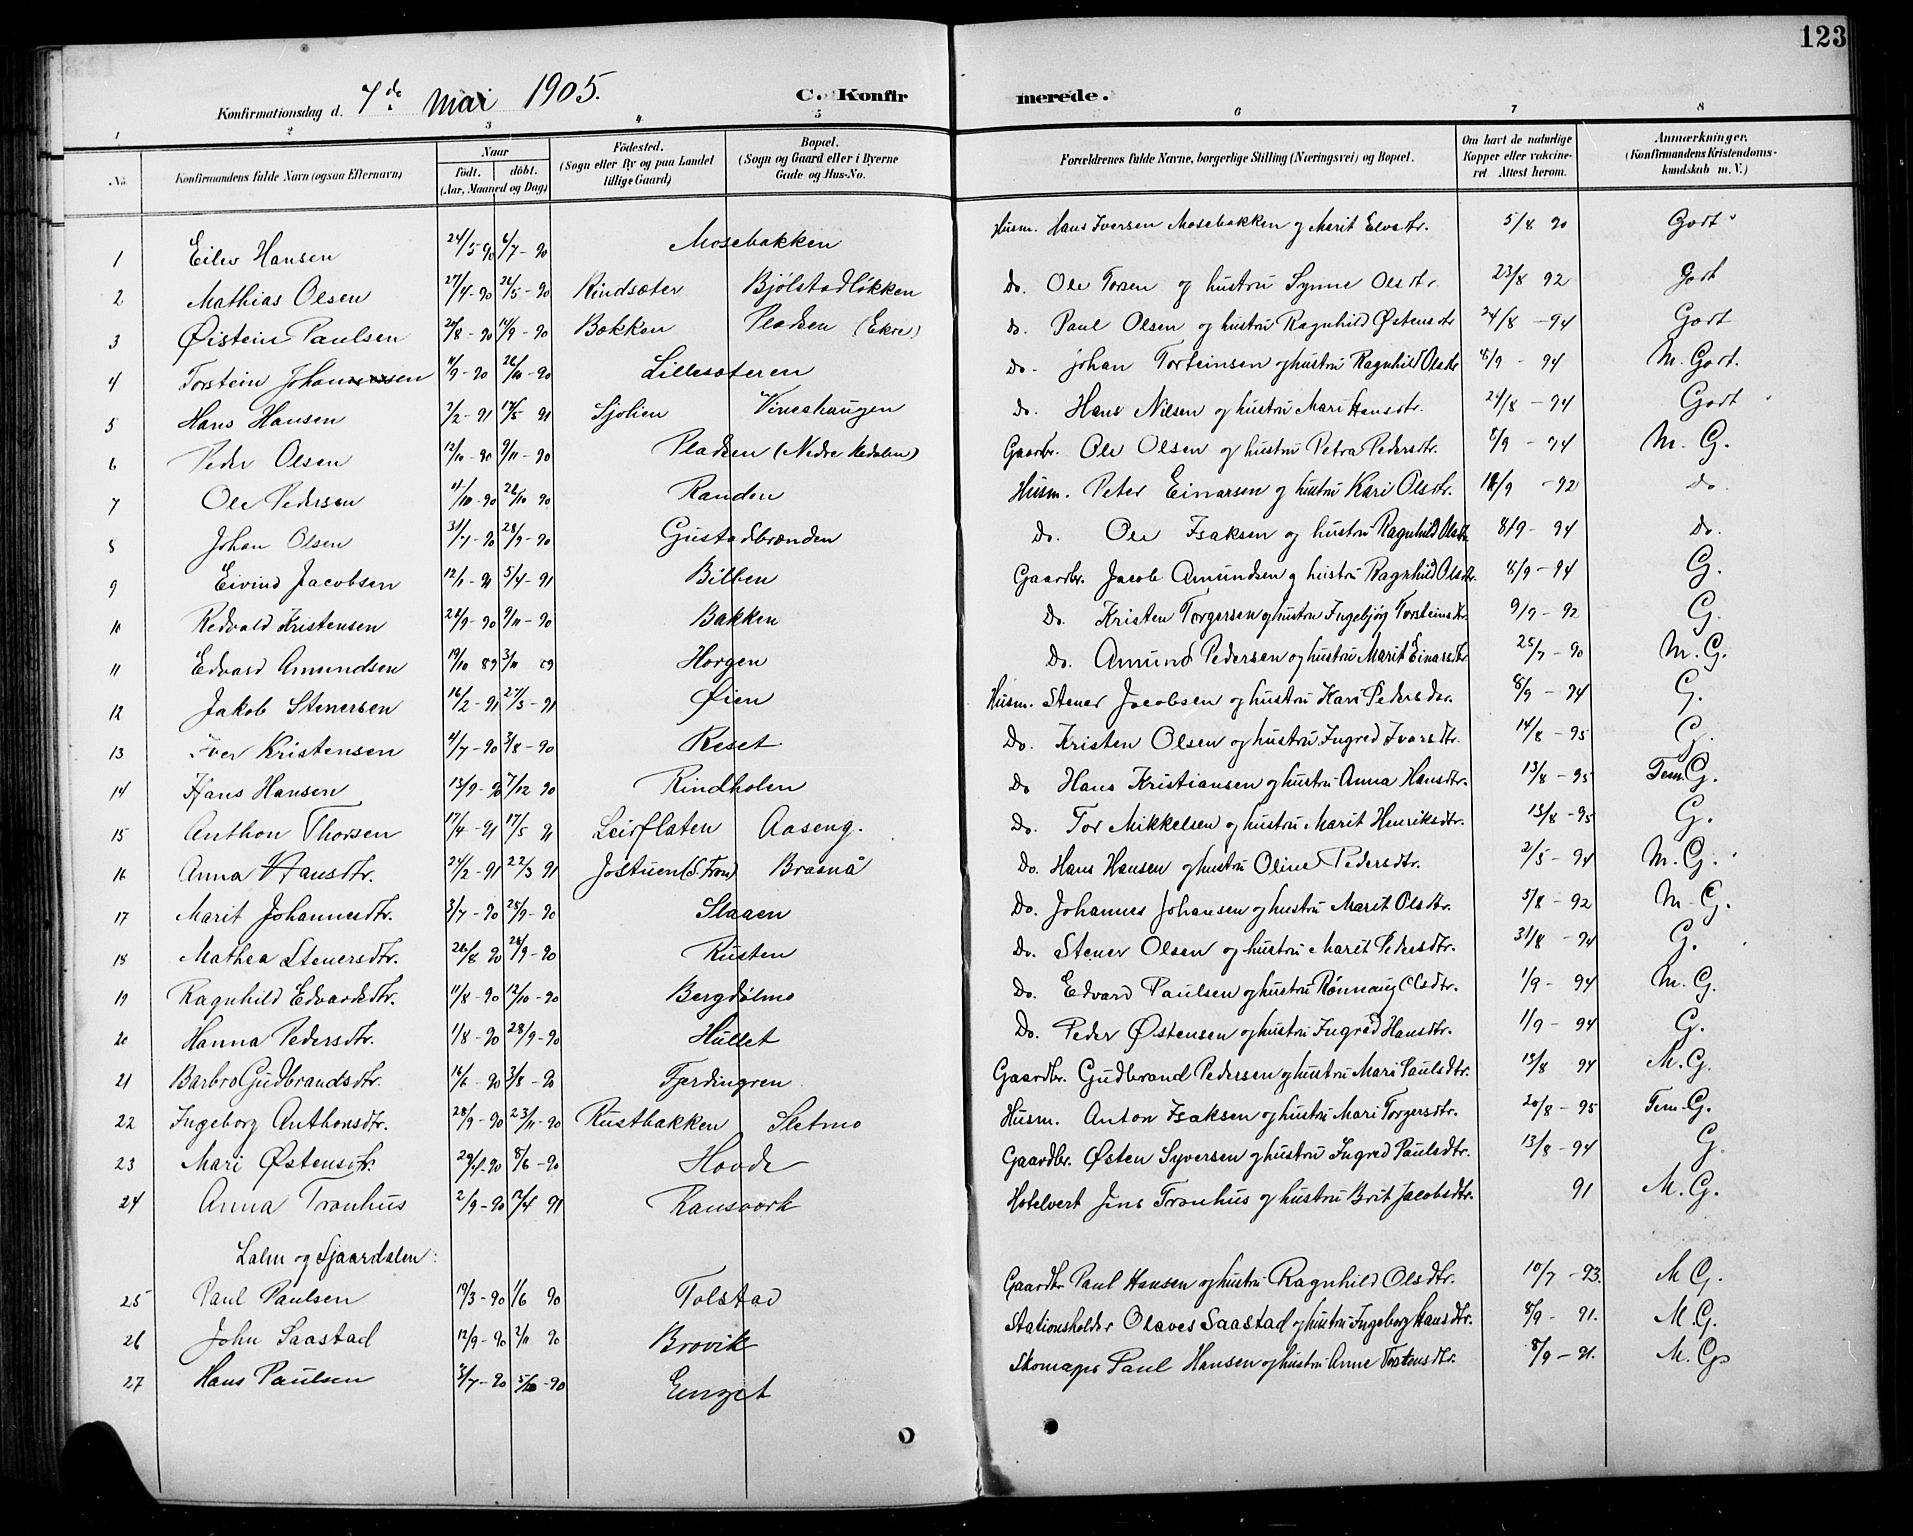 123
Konfirmationsdag d. 7de Mai 1905. C. Konfirmerede.
1 2 3 4 5 6 7 8
No. Konfirmandens fulde Navn (ogsaa Efternavn) Naar født. døbt. (Aar, Maaned og Dag) Fødested. (Sogn eller By og paa Landet tillige Gaard) Bopæl. (Sogn og Gaard eller i Byerne Gade og Hus-No. Forældrenes fulde Navne, borgerlige Stilling (Næringsvei) og Bopæl. Om havt de naturlige Kopper eller vakcineret Attest herom. Anmærkninger. (Konfirmandens Kristendomskundskab m. V.)
1 Eilev Hansen 24/5 90 6/7 - 90 Mosebakken Husm. Hans Iversen Mosebakken og Marit Elvsdtr. 5/8 90 Godt
2 Mathias Olsen 27/4 - 90 26/5 - 90 Rindsæter Bjølstadløkken Do. Ole Torsen og hustru Synne Olsdtr. 23/8 92 Godt
3 Øistein Paulsen 8 - 90 14/9 - 90 Bakken Pladsen (Ekre) Do. Paul Olsen og hustru Ragnhild Østensdtr 24/8 - 94 Godt
4 Torstein Johansen 11/9 - 90 26/10 - 90 Lillesæteren Do. Johan Torteinsen og hustru Ragnhild Olsdtr 8/9 - 94 M. Godt.
5 Hans Hansen 2/2 - 91 17/5 91 Sjolien Vineshaugen Do. Hans Nilsen og hustru Mari Hansdtr. 24/8 - 94 Godt
6 Peder Olsen 12/10 - 90 9/11 - 90 Pladsen (Nedre Hedalen) Gaardbr. Ole Olsen og hustru Petra Pedersdtr. 8/9 - 94 M. G.
7 Ole Pedersen 11/10 - 90 26/10 90 Randen Husm. Peter Einarsen og hustru Kari Olsdtr. /9 - 92 do
8 Johan Olsen 31/7 - 90 28/9 - 90 Gustadbrænden Do. Ole Isaksen og hustru Ragnhild Olsdtr. 8/9 - 94 Do.
9 Eivind Jacobsen 12/1 - 91 5/4 - 91 Bilben Gaardbr. Jacob Amundsen og hustru Ragnhild Olsdtr. 8/9 - 94 G.
10 Redvald Kristensen 28/9 - 90 9/11 - 90 Bakken Do. Kristen Torgersen og hustru Ingebjøg Torsteinsdtr. 9/9 - 92 G.
11 Edvard Amundsen 19/10 89 3/11 89 Horgen Do. Amund Pedersen og hustru Marit Einarsdtr. 25/7 - 90 M. G.
12 Jakob Stenersen 16/2 - 91 27/3 - 91 Øien Husm. Stener Jacobsen og hustru Kari Pedersdtr. 8/9 - 94 G.
13 Iver Kristensen 4/7 - 90 3/8 - 90 Reset Do. Kristen Olsen og hustru Ingred Ivarsdtr. 14/8 - 95 G.
14 Hans Hansen 13/9 - 90 7/12 90 Rindholen Do Hans Kristiansen og hustru Anna Hansdtr. 13/8 - 95 Tem. G.
15 Anthon Thorsen 17/4 - 91 17/5 91 Leirflaten Aaseng. Do. Tor Mikkelsen og hustru Marit Henriksdtr. 13/8 - 95 G.
16 Anna Hansdtr. 24/2 - 91 22/3 91 Jostuen (S. Fron) Brasnå Do. Hans Hansen og hustru Oline Pedersdtr. 2/5 - 94 M. G.
17 Marit Johannesdtr. 3/7 - 90 28/9 - 90 Slaaen Do. Johannes Johansen og hustru Marit Olsdtr. 5/8 - 92 M. G.
18 Mathea Stenersdtr. 26/8 90 28/9 - 90 Rusten Do. Stener Olsen og hustru Marit Pedersdtr. 31/8 - 94 G.
19 Ragnhild Edvardsdtr. 11/8 - 90 12/10 - 90 Bergdølmo Do. Edvard Paulsen og hustru Rønnaug Olsdtr. 1/9 - 94 M. G.
20 Hanna Pedersdtr. 1/8 - 90 28/9 - 90 Hullet Do. Peder Østensen og hustru Ingred Hansdtr. 1/9 - 94 G.
21 Barbro Gudbrandsdtr. 16/6 - 90 3/8 - 90 Fjerdingren Gaardbr. Gudbrand Pedersen og hustru Mari Paulsdtr. 13/8 94 M. G.
22 Ingeborg Anthonsdtr. 28/9 - 90 23/11 - 90 Rustbakken Sletmo Husm. Anton Isaksen og hustru Mari Torgersdtr. 20/8 - 95 Tem. G.
23 Mari Østensdtr. 29/4 - 90 8/6 - 90 Hovde Gaardbr. Østen Syversen og hustru Ingred Paulsdtr. 13/8 - 94 G.
24 Anna Tronhus 2/9 - 90 12/4 91 Ransvark Hotelvert Jens Tronhus og hustru Brit Jacobsdtr. 91 M. G.
Lalm og Sjaardalen:
25 Paul Paulsen 19/3 - 90 1/6 90 Tolstad Gaardbr. Paul Hansen og hustru Ragnhild Olsdtr. 10/7 - 93. M G.
26 John Saastad 12/9 - 90 2/11 90 Brovik Stationsholder Olaves Saastad og hustru Ingeborg Hansdtr. 8/9 - 91. M. G.
27 Hans Paulsen 3/7 - 90 5/10 - 90 Enget Skomager Paul Hansen og hustru Anne Tostensdtr. 8/9 - 91. M. G.